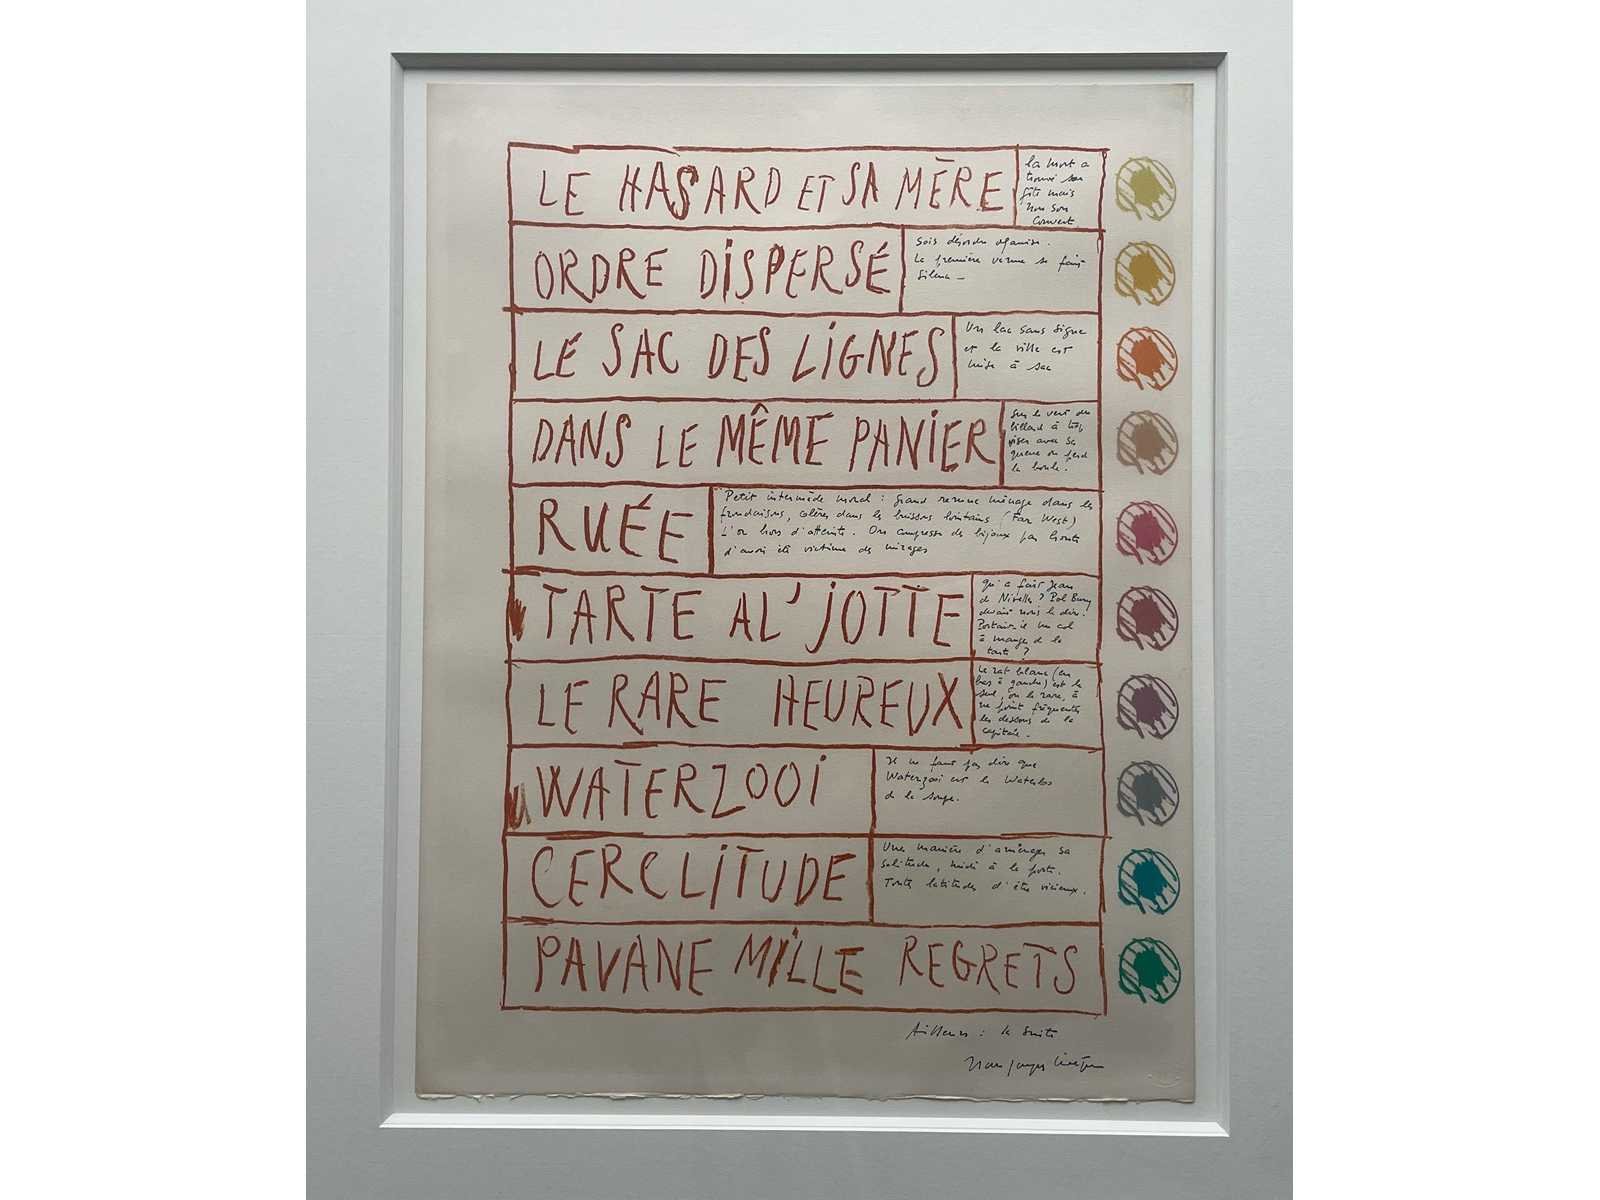 LE HASARD ET SA MÈRE
la mort a
trouvé son
gîte mais
non son
couvert
ORDRE DISPERSÉ
Sois désordre organisé.
La première venue se fait
LE SAC DES LIGNES
Un lac sans signe
et la ville est
mise à sac
DANS LE MÊME PANIER
Sur le vert du
billard à trop
viser avec sa
queue on perd
la boule.
RUÉE
Petit intermède moral : grand remue ménage dans les
frondaisons, colères dans les buissons lointains (Far West)
L'or hors d'atteinte. On compresse des bijoux par honte
d'avoir été victime des mirages
TARTE AL'JOTTE
qu'a fait Jean
de Nivelles ? Pol Bury
devait nous le dire.
Portait-il un col
à manger de la
tarte ?
LE RARE HEUREUX
Le rat blanc (en
bas à gauche) est le
seul, ou le rare, à
ne point fréquenter
les dessous de la
capitale.
WATERZOOI
Je ne fais pas dire que
Waterzooi est le Waterloo
de la soupe.
CERCLITUDE
Une manière d'aménager sa
solitude, midi à la porte.
Toute latitude d'être vicieux.
PAVANE MILLE REGRETS
Ailleurs : la suite